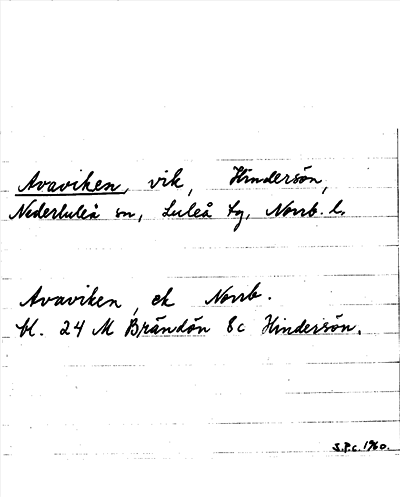 Avaviken, vik, Hindersön,
Nederluleå sn, Luleå tg, Norrb. l.
Avaviken, ek Norrb.
bl. 24 M Brändön 8c Hindersön.
S.P.c. 1960.